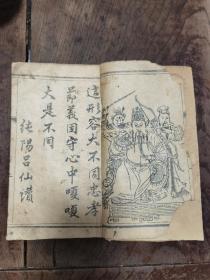 這形容大不同忠孝
節義固守心中嘎嘎
大是不同
純陽呂仙讚